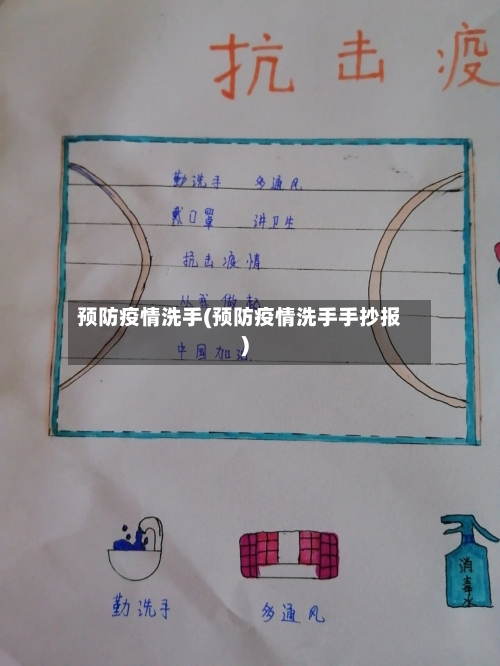 抗击疫
勤洗手 多通风
戴口罩 讲卫生
抗击疫情
从我做起
预防疫情洗手(预防疫情洗手手抄报
)
中国加油
勤洗手
多通风
消毒水